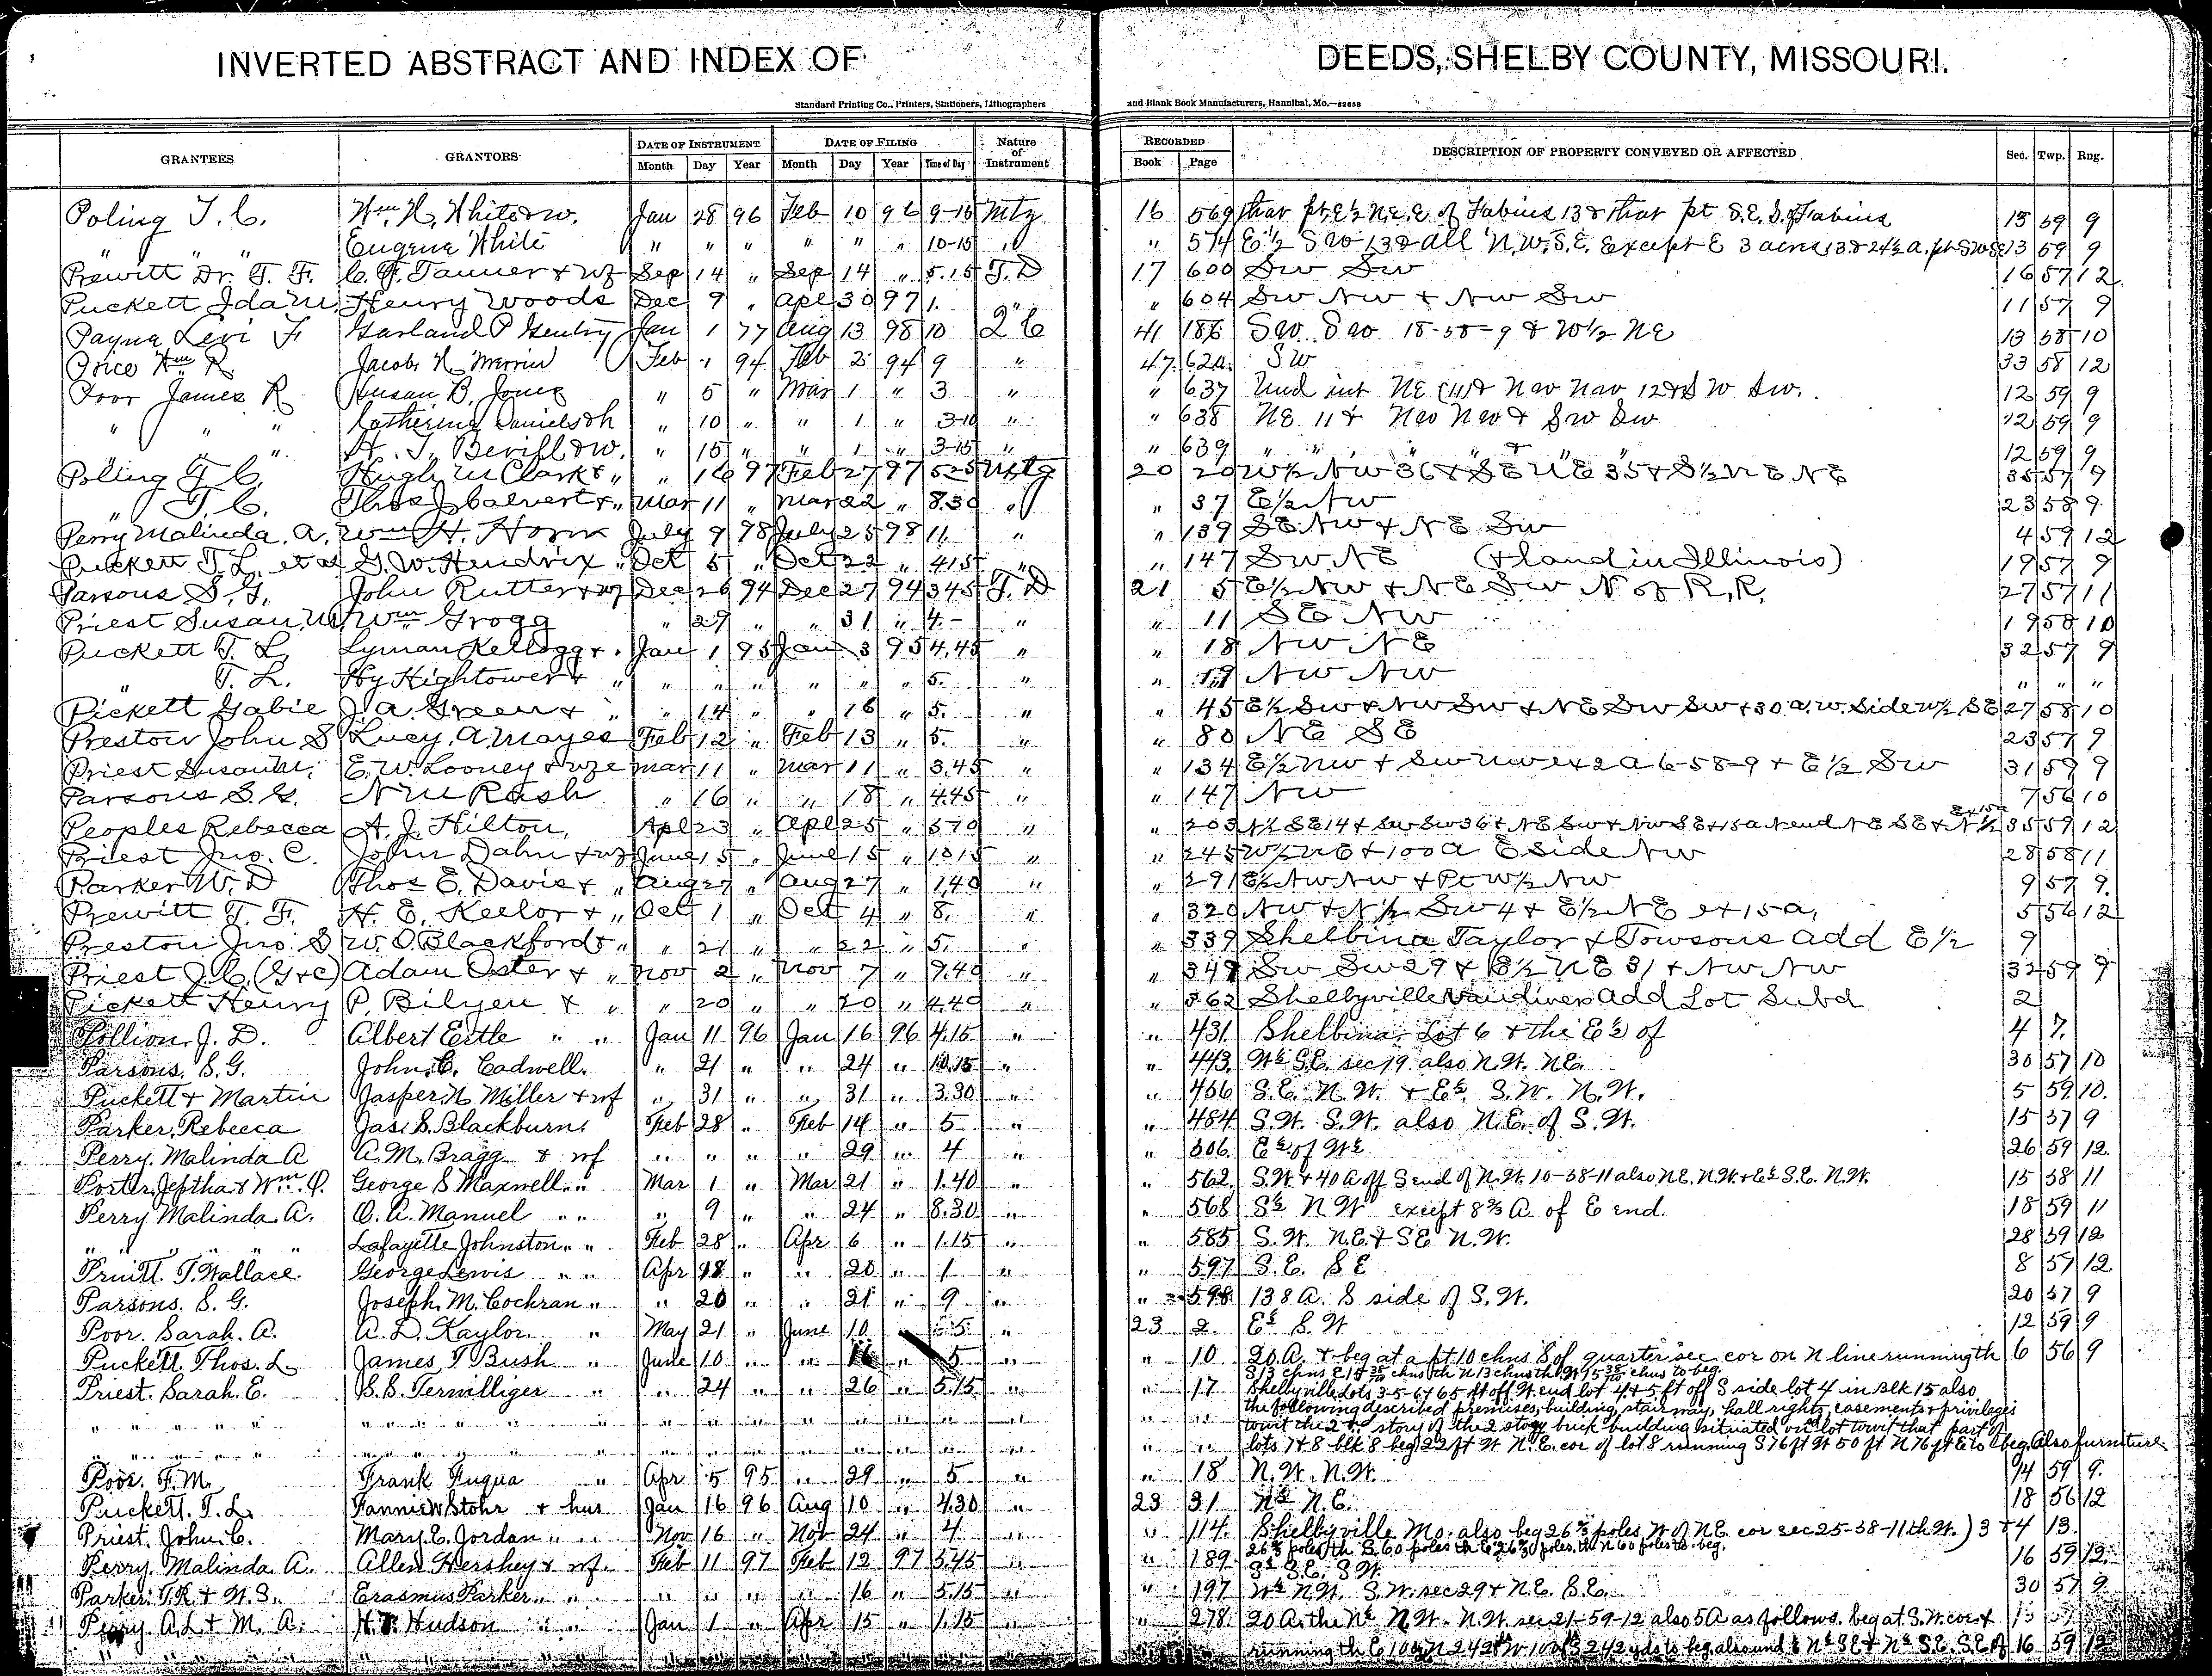 INVERTED ABSTRACT AND INDEX OF DEEDS, SHELBY COUNTY, MISSOURI.
Standard Printing Co., Printers, Stationers, Lithographers and Blank Book Manufacturers, Hannibal, Mo.
GRANTEES GRANTORS DATE OF INSTRUMENT DATE OF FILING Nature of Instrument RECORDED DESCRIPTION OF PROPERTY CONVEYED OR AFFECTED Sec. Twp. Rng.
Month Day Year Month Day Year Time of Day Book Page
Poling T. C. Wm H. White & w. Jan 28 96 Feb 10 96 9-15 Mtg 16 569 that pt E½ N.E. of Fabius 13 & that pt S.E. S. of Fabius 13 59 9
" " " Eugene White " " " " " " 10-15 " " 574 E½ SW 13 & all N.W. S.E. except E 3 acres 13 & 24½ a. pt SW SE 13 59 9
Prewitt Dr. T. F. C. F. Tanner & wf Sep 14 " Sep 14 " 5.15 T. D 17 600 SW SW 16 57 12
Puckett Ida M. Henry Woods Dec 9 " Apl 30 97 1. " " 604 SW NW & NW SW 11 57 9
Payne Levi F Garland P Gentry Jan 1 77 Aug 13 98 10 Q C 41 186 SW SW 18-58-9 & W½ NE 13 58 10
Price Wm R. Jacob N. Merrin Feb 1 94 Feb 2 94 9 " 47 620 SW 33 58 12
Poor James R Susan B. Jones " 5 " Mar 1 " 3 " " 637 Und int NE (11) & NW NW 12 & SW SW. 12 59 9
" " " Catherine Daniels " 10 " " 1 " 3-10 " " 638 NE 11 & NW NW & SW SW 12 59 9
" " " " 15 " " 1 " 3-15 " " 639 " " " " & " 12 59 9
Poling T. C. Hugh M Clark & " " 16 97 Feb 27 97 5-25 Mtg 20 20 W½ NW 36 & SE NE 35 & S½ NE NE 35 57 9
" T. C. Thos J Calvert & " Mar 11 " Mar 22 " 8.30 " " 37 E½ NW 23 58 9
Perry Malinda. A. Wm H. Horn July 9 98 July 25 98 11. " " 139 SE NW & NE SW 4 59 12
Puckett T. L. et al G. W. Hendrix " Oct 5 " Oct 22 " 4.15 " " 147 SW. NE (& land in Illinois) 19 57 9
Parsons S. G. John Rutter & wf Dec 26 94 Dec 27 94 3.45 T. D 21 5 E½ NW & NE SW N of R.R. 27 57 11
Priest Susan M Wm Grogg " 29 " 31 " 4.- " " 11 SE NW 19 58 10
Puckett T. L. Lyman Kellogg & " Jan 1 95 Jan 3 95 4.45 " " 18 NW NE 32 57 9
" T. L. Hy Hightower & " " " " " " " 5. " " 19 NW NW " " "
Pickett Gabie J. A. Green & " " 14 " " 16 " 5. " " 45 E½ SW & NW SW & NE SW SW & 30 a. W. side W½ SE 27 58 10
Preston John S Lucy. A. Mayes Feb 12 " Feb 13 " 5. " " 80 NE SE 23 57 9
Priest Susan M. E. W. Looney & wfe Mar 11 " Mar 11 " 3.45 " " 134 E½ NW & SW NW ex 2 a 6-58-9 & E½ SW 31 59 9
Parsons S. G. N M Rash " 16 " " 18 " 4.45 " " 147 NW 7 56 10
Peoples Rebecca A. J. Hilton, Apl 23 " Apl 25 " 5 10 " " 203 N½ SE 14 & SW SW 36 & NE SW & NW SE & 15 a N end NE SE & N½ 35 59 12
Priest Jno. C. John Dahn & wf June 15 " June 15 " 10 15 " " 245 W½ NE & 100 a E side NW 28 58 11
Parker W. D Thos E. Davis & " Aug 27 " Aug 27 " 1.40 " " 291 E½ NW NW & Pt W½ NW 9 57 9.
Prewitt T. F. H. E. Keelor & " Oct 1 " Oct 4 " 8. " " 320 NW & N½ SW 4 & E½ NE ex 15 a, 5 56 12
Preston Jno. S W. O. Blackford & " " 21 " " 22 " 5. " " 339 Shelbina Taylor & Towsons add E½ 9
Priest J. C. (G & C) Adam Oster & " Nov 2 " Nov 7 " 9.40 " " 349 SW SW 29 & E½ NE 31 & NW NW 32 59 9
Pickett Henry P. Bilyeu & " " 20 " " 20 " 4.40 " " 362 Shelbyville Vandivers add Lot Subd 2
Pollion. J. D. Albert Ertle " " Jan 11 96 Jan 16 96 4.15 " " 431 Shelbina Lot 6 & the E½ of 4 7.
Parsons. S. G. John. C. Cadwell. " 21 " 24 " 10.15 " " 443. W½ S.E. sec 19. also N.W. NE. 30 57 10
Puckett & Martin Jasper. N. Miller & wf " 31 " " 31 " 3.30 " " 456 S.E. N.W. & E½ S.W. N.W. 5 59 10.
Parker. Rebecca Jas. S. Blackburn. Feb 28 " Feb 14 " 5 " " 484 S.W. S.W. also N.E. of S.W. 15 57 9
Perry. Malinda A A. M. Bragg & wf " " " " 29 " 4 " " 506. E½ of W½ 26 59 12.
Porter, Jeptha & Wm. P. George S Maxwell " " Mar 1 " Mar 21 " 1.40 " " 562. S.W. & 40 A off S end of N.W. 10-58-11 also N.E. N.W. & E½ S.E. N.W. 15 58 11
Perry Malinda. A. O. A. Manuel " " " 9 " " 24 " 8.30 " " 568 S½ N W except 8⅔ A of E end. 18 59 11
" " " " Lafayette Johnston " " Feb 28 " Apr 6 " 1.15 " " 585 S.W. N.E. & SE N.W. 28 59 12
Pruitt. T. Wallace. George Lewis " " Apr 18 " " 20 " 1 " " 597 S.E. SE 8 57 12.
Parsons. S. G. Joseph. M. Cochran " " 20 " " 21 " 9 " " 598 138 A. S side of S.W. 20 57 9
Poor. Sarah. A. A. D. Kaylor. " May 21 " June 10 5 " 23 2. E½ S.W 12 59 9
Puckett. Thos. L. James T. Bush " June 10 " " " 5 " " 10 20 A. & beg at a pt 10 chns S of quarter sec cor on N line running th 6 56 9
S 13 chns E 15 38/100 chns th N 13 chns th W 15 38/100 chns to beg.
Priest. Sarah. E. S. S. Terwilliger " " 24 " " 26 " 5.15 " " 17 Shelbyville Lots 3-5-6 & 65 ft off W. end lot 4 & 5 ft off S side lot 4 in Blk 15 also
" " " " " " " " " " " " " " " " the following described premises, building, stairway, hall rights, easements & privileges
towit the 2nd story of the 2 story brick building situated on lot towit that part of
" " " " " " " " " " " " " " " " lots 7 & 8 blk 8 beg 22 ft W N.E. cor of lot 8 running S 76 ft W 50 ft N 76 ft E to beg. Also furniture
Poor. F. M. Frank Fuqua " Apr 5 95 " 29 " 5 " " 18 N.W. N.W. 14 59 9.
Puckett. T. L. Fannie W Stohr & hus Jan 16 96 Aug 10 " 4.30 " 23 31 N½ N.E. 18 56 12
Priest. John. C. Mary. E. Jordan " " Nov 16 " Nov 24 " 4 " " 114. Shelbyville Mo. also beg 26⅔ poles W of NE cor sec 25-58-11 th W. ) 3 & 4 13.
26⅔ poles th S. 60 poles th E 26⅔ poles. th N 60 poles to beg.
Perry. Malinda A. Allen Hershey & wf. Feb 11 97 Feb 12 97 3.45 " " 189. S½ S.E. S.W. 16 59 12.
Parker. T. R & W. S. Erasmus Parker " " " " " 16 " 5.15 " " 197 W½ N.W. S.W. sec 29 & N.E. S.E. 30 57 9
Perry A. L & M. A. Hudson " " Jan 1 " Apr 15 " 1.15 " " 278. 20 A. the N½ N.W. N.W. sec 21-59-12 also 5 A as follows. beg at S.W. cor &
running th E 100 yds N 242 W 100 S 242 yds to beg. also und ½ N½ SE & N½ S.E. S.E. of 16 59 12